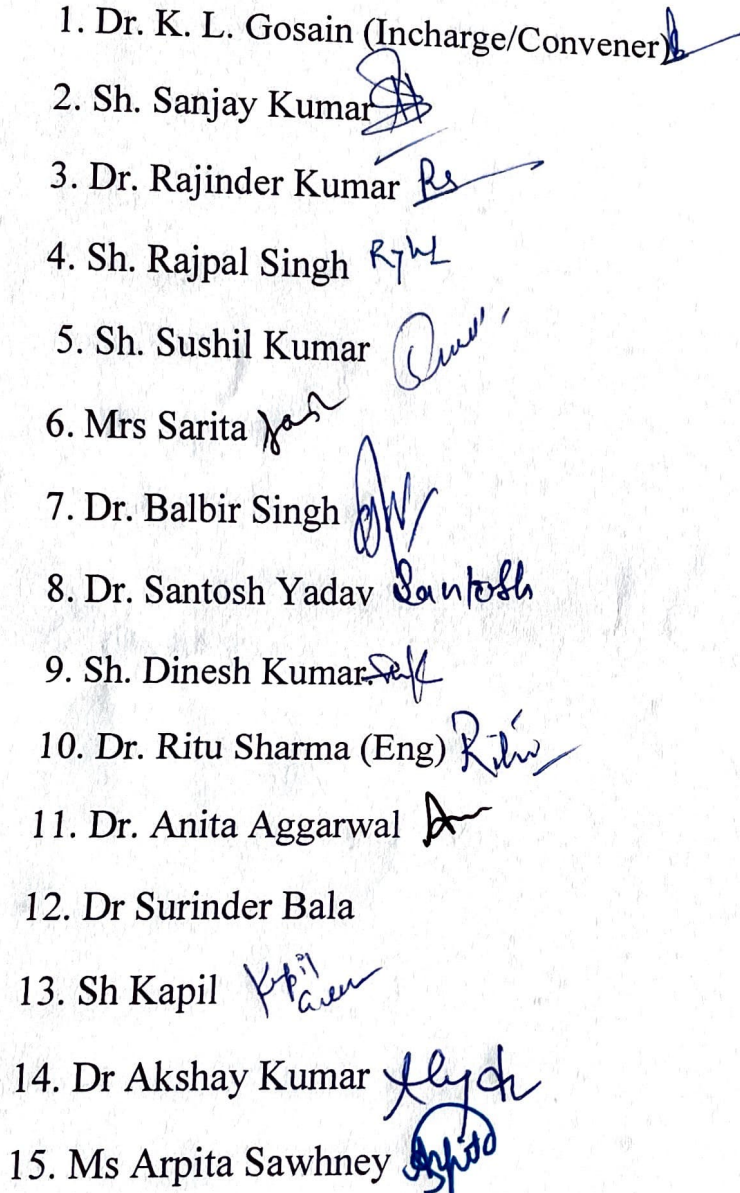 1. Dr. K. L. Gosain (Incharge/Convener)
2. Sh. Sanjay Kumar
3. Dr. Rajinder Kumar
4. Sh. Rajpal Singh
5. Sh. Sushil Kumar
6. Mrs Sarita
7. Dr. Balbir Singh
8. Dr. Santosh Yadav Santosh
9. Sh. Dinesh Kumar.
10. Dr. Ritu Sharma (Eng) Ritu
11. Dr. Anita Aggarwal
12. Dr Surinder Bala
13. Sh Kapil Kapil
14. Dr Akshay Kumar
15. Ms Arpita Sawhney Arpita